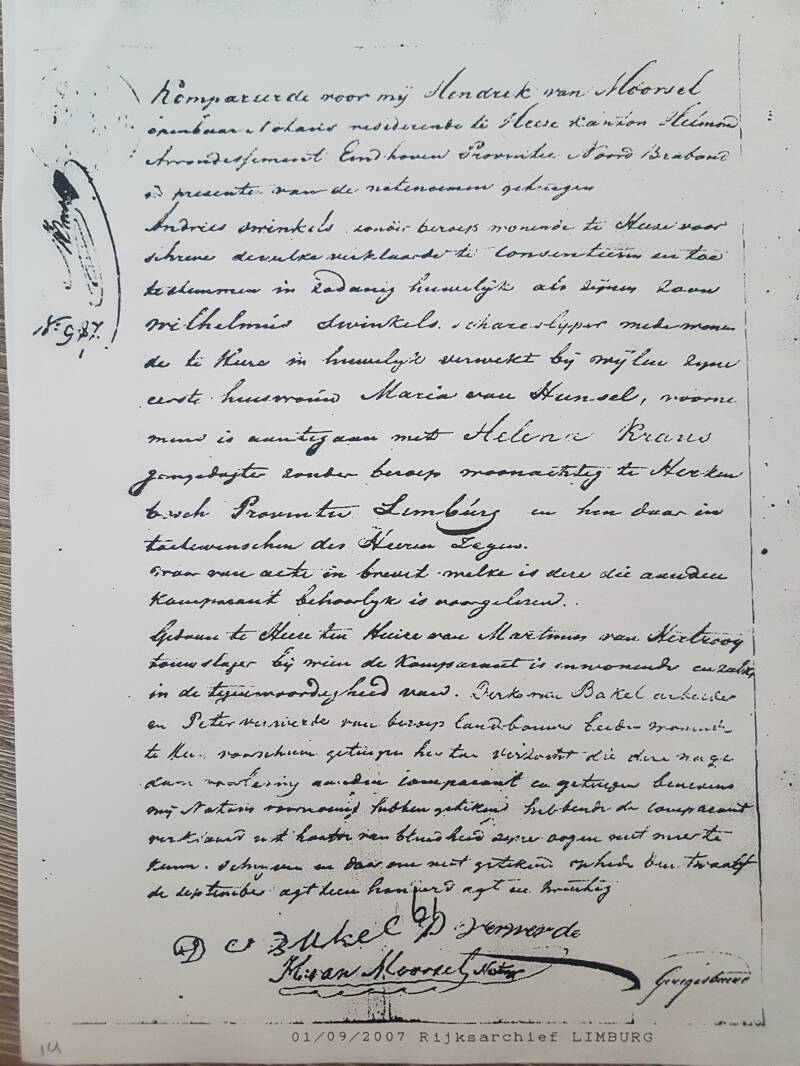 Kompareerde voor mij Hendrek van Moorsel
openbaar Notaris resideerende te Heese kanton Helmond
Arrondissement Eindhoven Provintie Noord Braband
presente van de natenoemen getuigen
Andries Swinkels sonder beroep wonende te Heese voor
schreve dewelke verklaarde te consenteeren en toe
testemmen in zodanig huwelijk als zijnen zoon
Wilhelmus Swinkels scharesliper mede wonen
de te Heese in huwelijk verwekt bij wijlen zyne
eerste huisvrouw Maria van Hunsel, voorne
mens is aantegaan met Helena Krans
jongedogter zonder beroep woonachtig te Herken
bosch Provintie Limburg en hen daar in
toetewenschen des Heeren Zegen.
waar van acte in brevet welke is dese die aan den
Komparant behoorlyk is voorgelesen.
Gedaan te Heese ten Huise van Martinus van
touwslager bij wien de Komparant is inwonende
in de tegenwoordigheid van Derk van Bakel arbeider
en Peter verwerde van beroep landbouwer beiden wonende
te Heese voorschreve getuigen hier toe verzocht die dese na ge
dane voorlesing aan den comparant en getuigen benevens
mij Notaris voornoemd hebben getekend hebbende de comparant
verklaard uit hoofde van blindheid zyner oogen niet meer te
kunnen schryven en daarom niet getekend op heden den twaalf
de september agt tien honderd agt en twintig
D v Bakel P verwerde
H. van Moorsel Nots
No 987.
14
01/09/2007 Rijksarchief LIMBURG